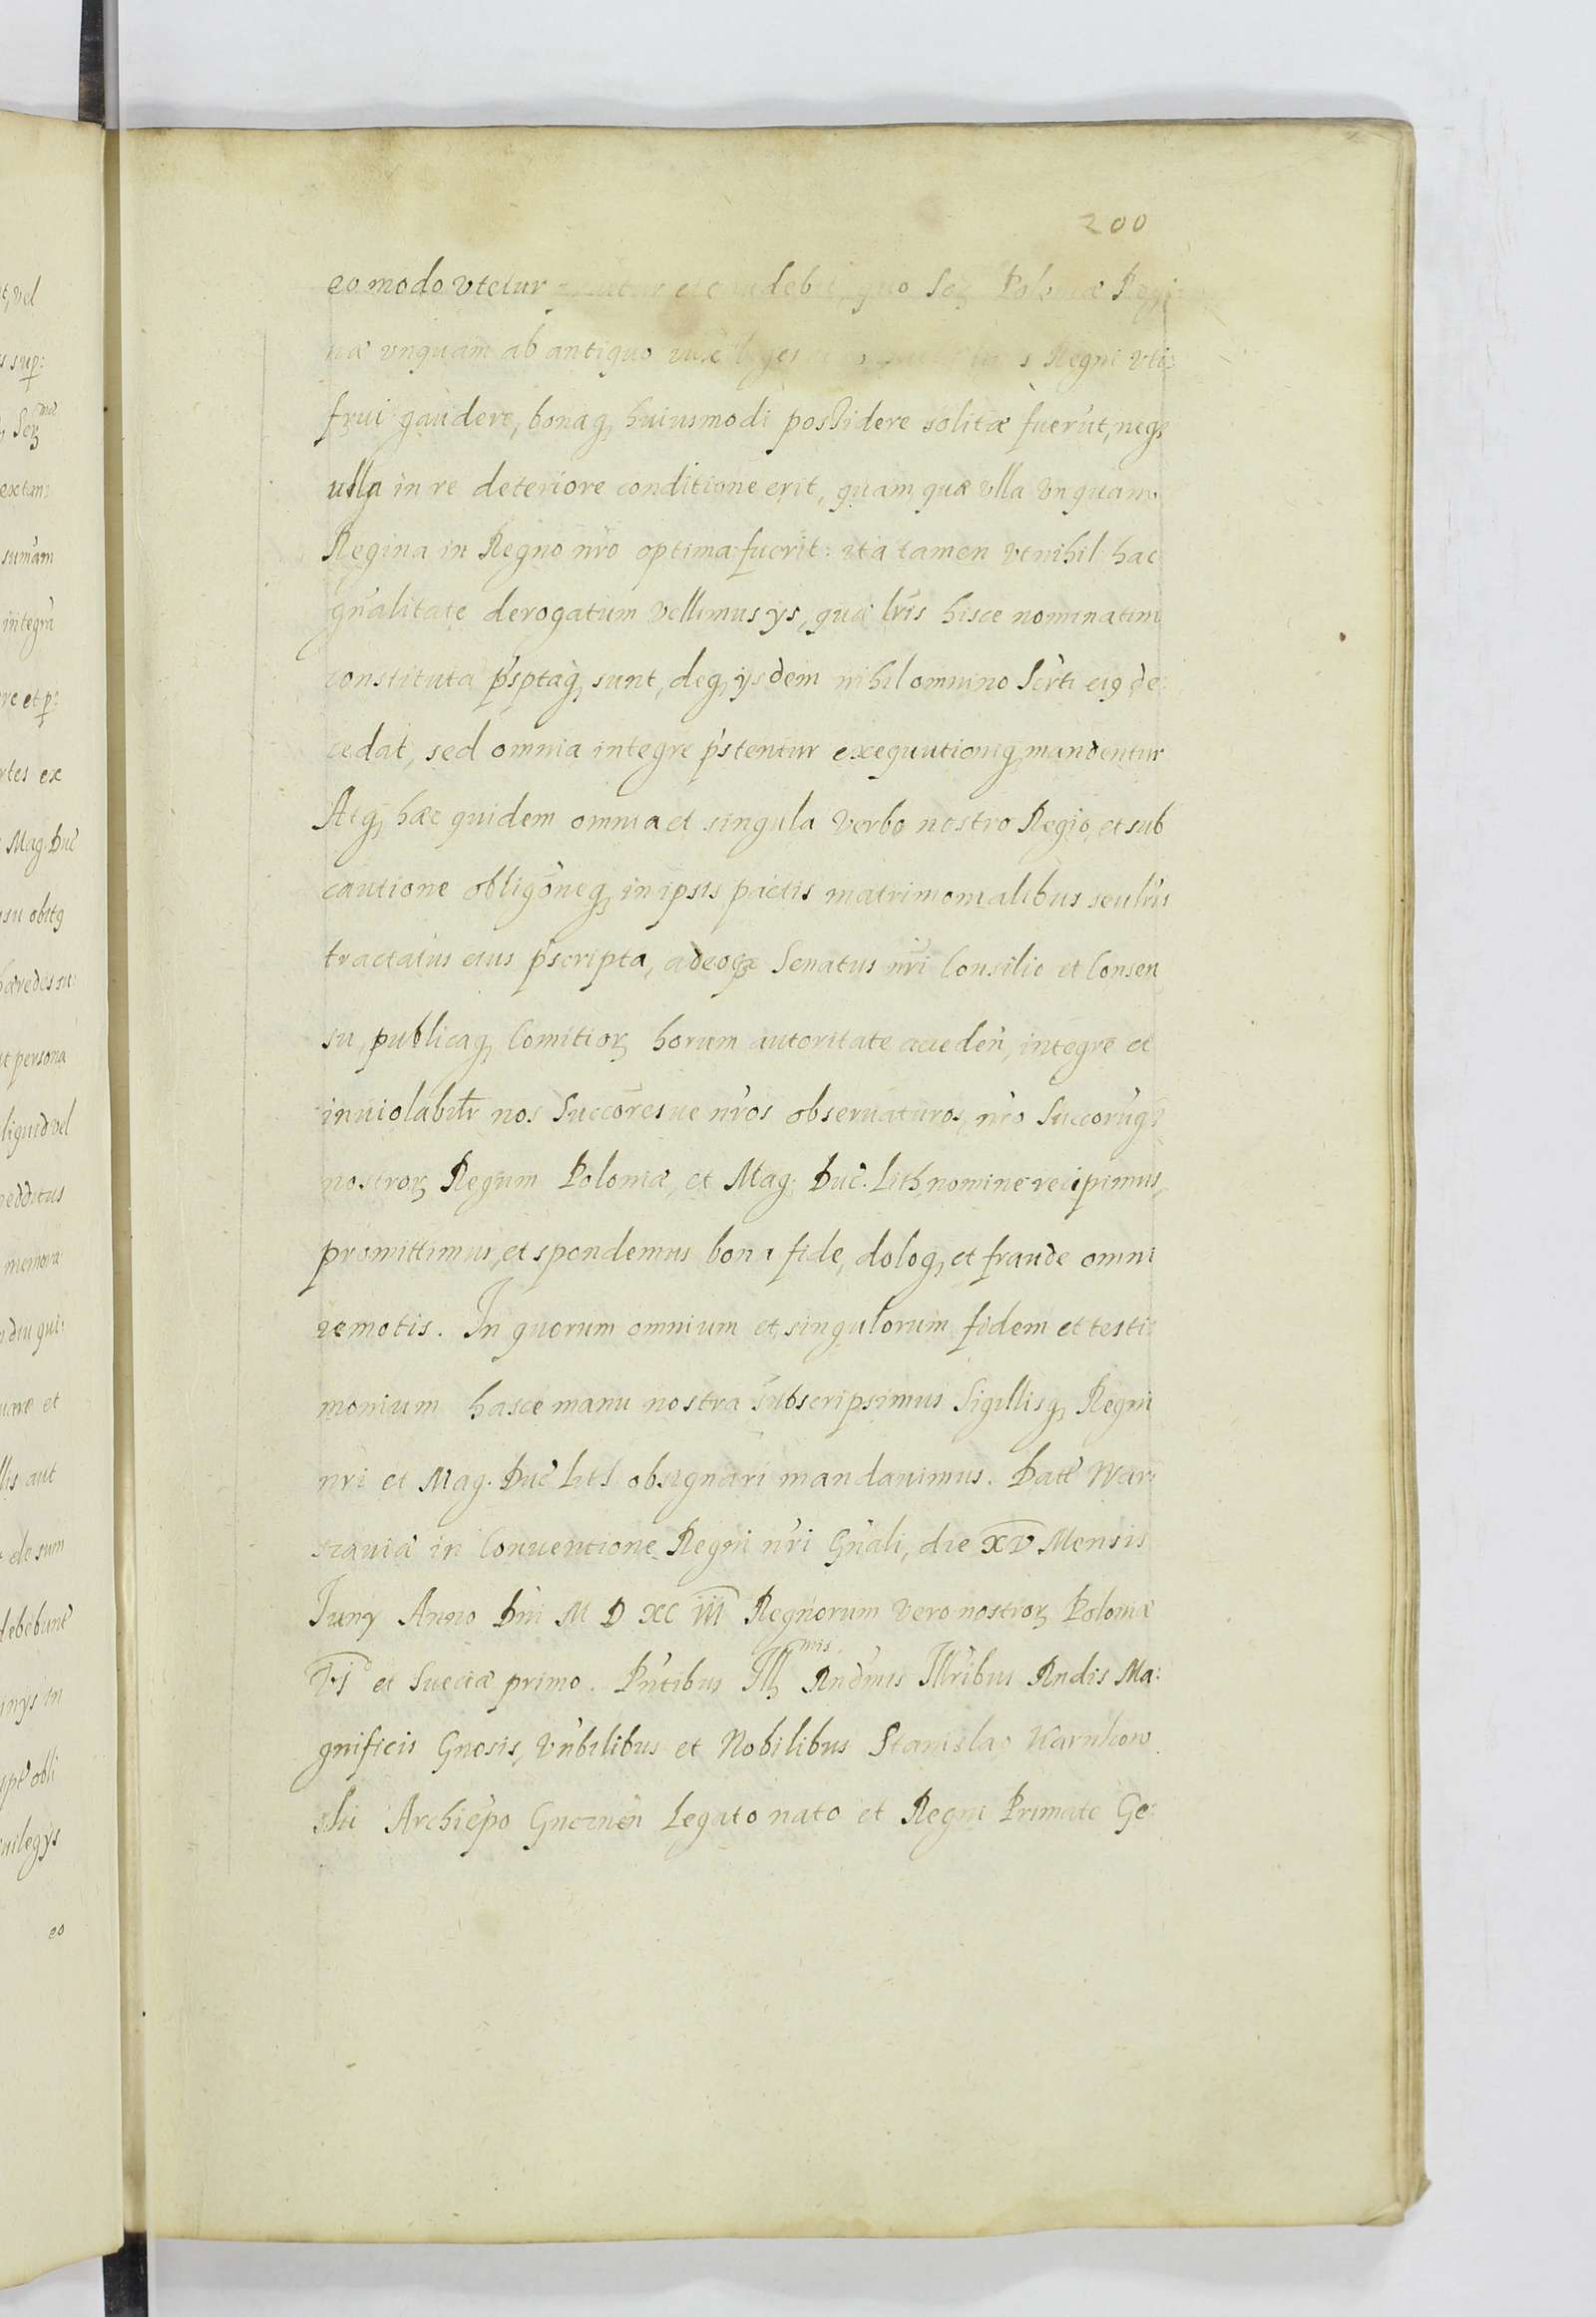 200
eo modo vtetur et gaudebit, quo Ser Poloniæ Regi:
næ vnquam ab antiquo iuxta leges Regni vti:
frui gaudere, bonaq, huiusmodi possidere solitæ fuerut, neq,
ulla in re deteriore conditione erit, quam quæ vlla vnquam
Regina in Regno nro optima fuerit: ita tamen vt nihil hac
gnalitate derogatum vellimus ys, quæ lris hisce nominatim
constituta psptaq, sunt, deq, ysdem nihil omnino Serti eiq de:
cedat, sed omnia integre pstentur exequutioniq, mandentur
Atq, hæc quidem omnia et singula verbo nostro Regio, et sub
cautione obligoneq, in ipsis pactis matrimonialibus seu lris
tractatus eius pscripta, adeoq, Senatus nri Consilio et Consen
su, publicaq, Comitior, horum autoritate acceden, integre et
inuiolabilr nos Succoresue nros obseruaturos, nro Succoruq,
nostror, Regum Poloniæ, et Mag. Duc. Lith, nomine recipimus,
promittimus, et spondemus bona fide, doloq, et fraude omni
remotis. In quorum omnium et singulorum fidem et testi:
monium hasce manu nostra subscripsimus Sigillisq, Regni
nri et Mag. Duc Lith obsignari mandauimus. Datt War:
szauiæ in Conuentione Regni nri Gnali, die XV Mensis
Juny Anno Dni M D XC iii Regnorum vero nostror, Poloniæ
et Sueciæ primo. Pntibus Ill,mis Rndmis Illribus Rndis Ma:
gnificis Gnosis, Vnbilibus et Nobilibus Stanislao Karnkow
ski Archiepo Gneznen Legato nato et Regni Primate Ge: